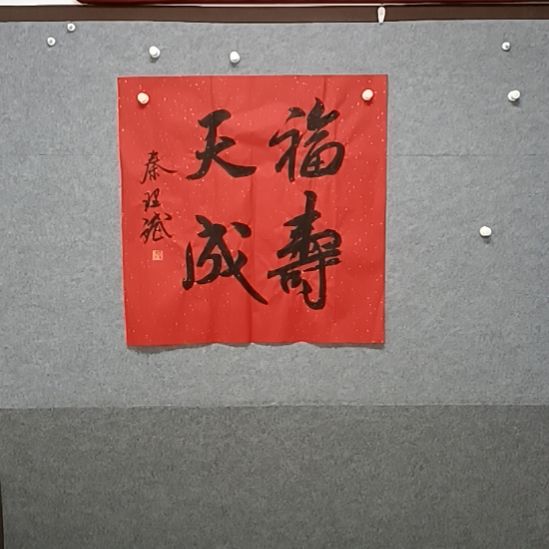 福壽
天成
秦理斌